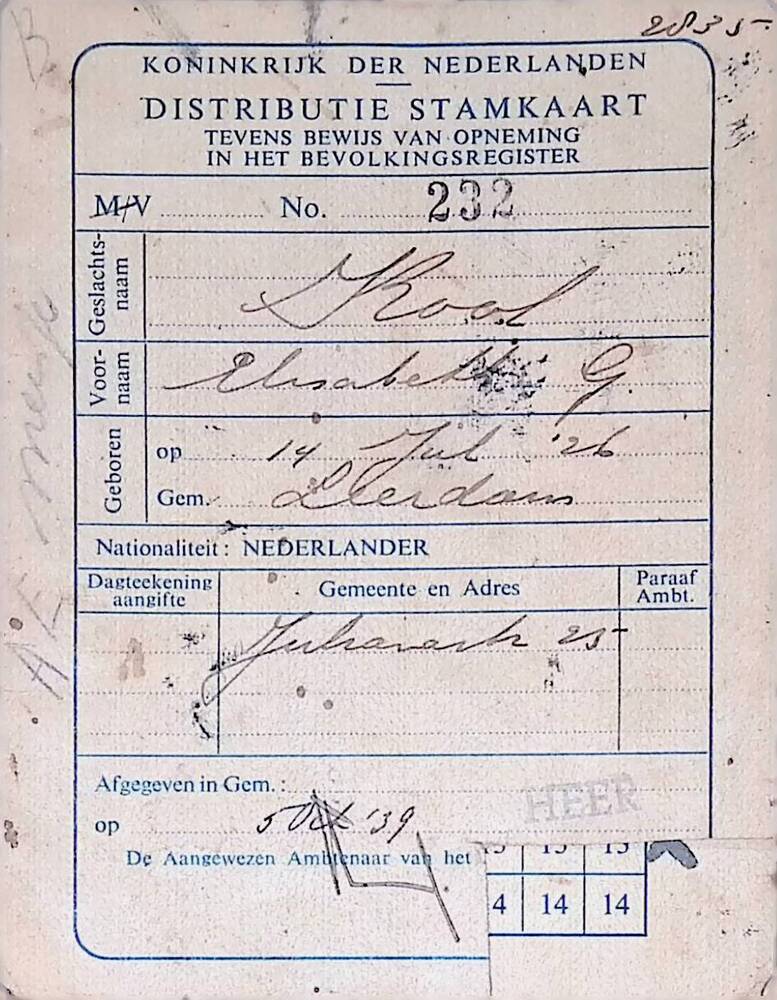 2835
KONINKRIJK DER NEDERLANDEN
DISTRIBUTIE STAMKAART
TEVENS BEWIJS VAN OPNEMING
IN HET BEVOLKINGSREGISTER
M/V No. 232
Geslachts-
naam
Kool
Voor-
naam
Elisabeth G.
Geboren
op 14 Jul '26
Gem. Leerdam
Nationaliteit: NEDERLANDER
Dagteekening
aangifte
Gemeente en Adres
Paraaf
Ambt.
Julianastr 25
Afgegeven in Gem.:
HEER
op 5 Oct '39
De Aangewezen Ambtenaar van het
13 13 13
4 14 14